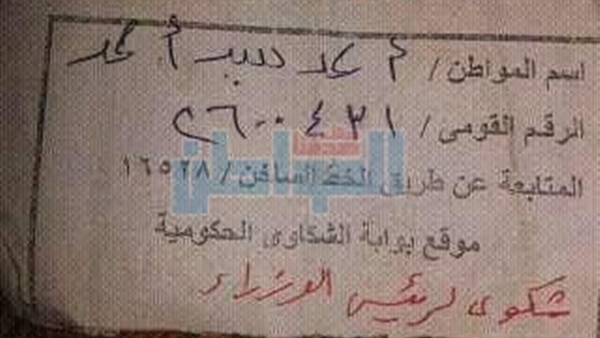 اسم المواطن / محمد سيد أحمد
الرقم القومى / ٢٦٠٠٤٣١
المتابعة عن طريق الخط الساخن / ١٦٥٢٨
موقع بوابة الشكاوى الحكومية
شكوى لرئيس الوزراء